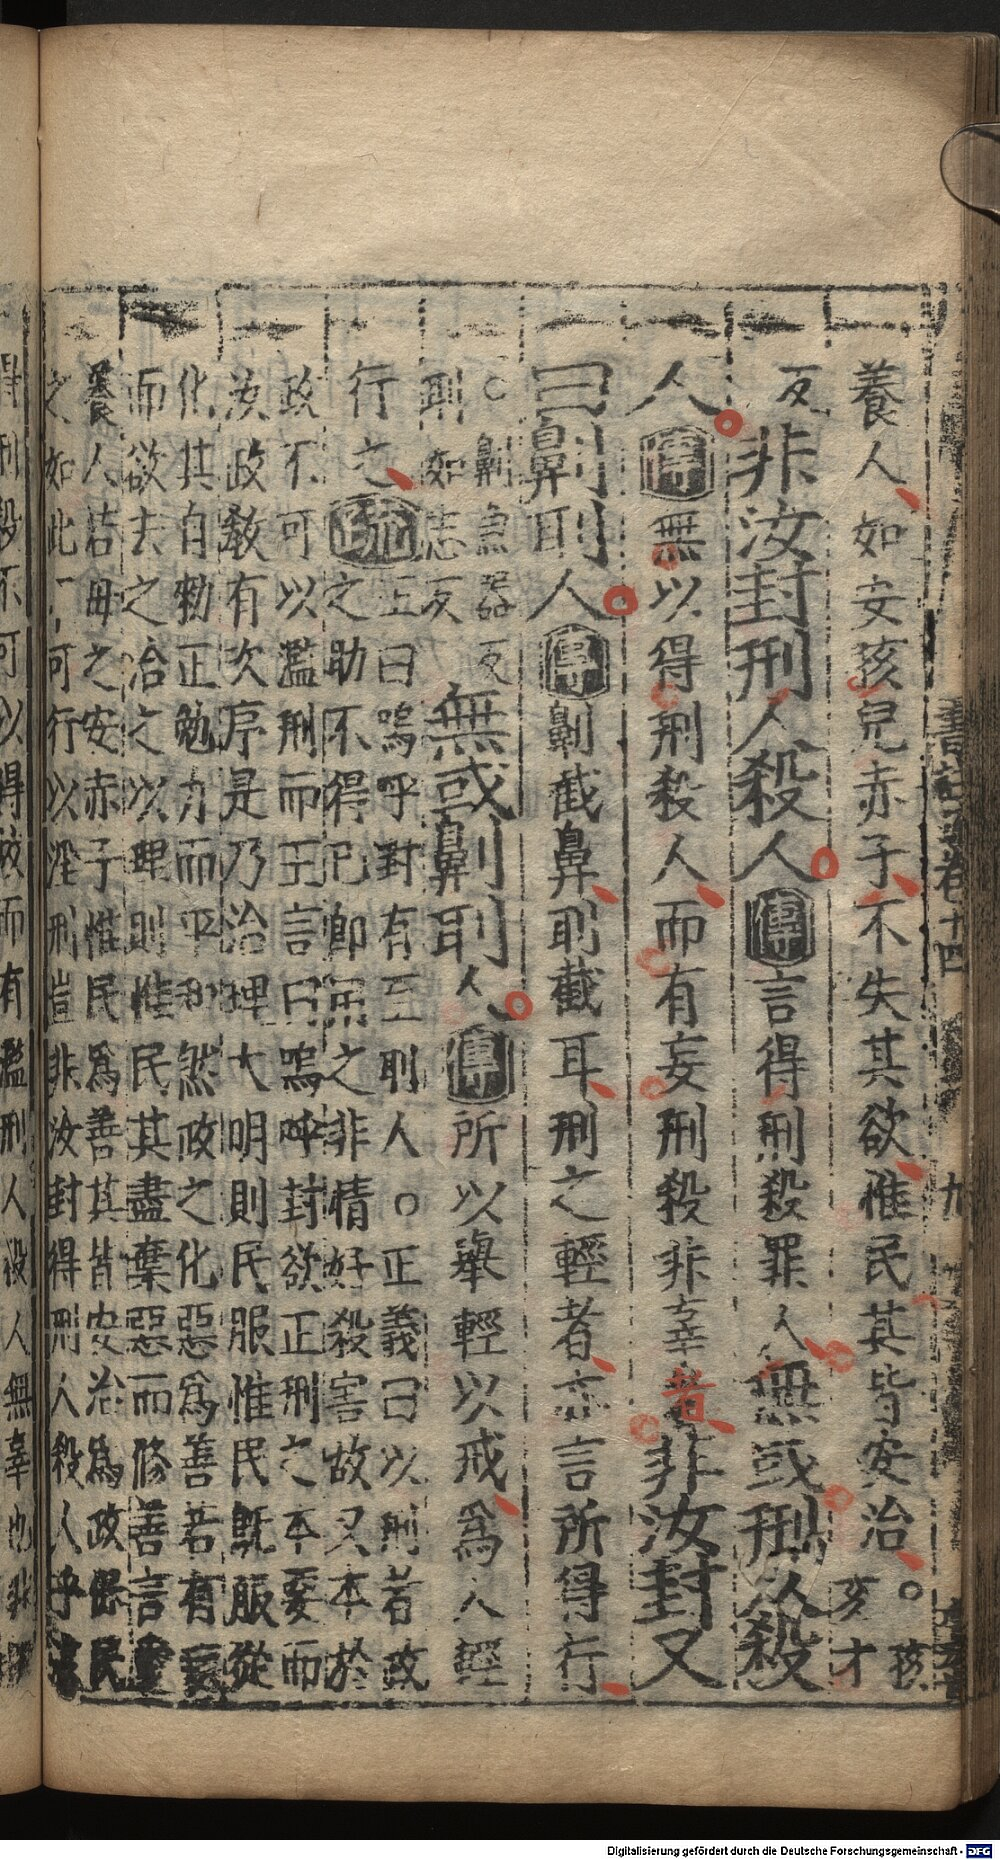 養人如安孩兒赤子不失其欲惟民其皆安治○孩亥才
反非汝封刑人殺人傳言得刑殺罪人無或刑人殺
人傳無以得刑殺人而有妄刑殺非辜者非汝封又
曰劓刵人傳劓截鼻刵截耳刑之輕者亦言所得行
○劓魚器反
刵如志反無或劓刵人傳所以舉輕以戒為人輕
行之疏
正曰嗚呼封有至刵人○正義曰以刑者政
之助不得已即用之非情好殺害故又本於
政不可以濫刑而王言曰嗚呼封欲正刑之本要而
汝政教有次序是乃治理大明則民服惟民既服從
化其自勑正勉力而平和然政之化惡為善若有
而欲去之治之以理則惟民其盡棄惡而修善言
養人若母之安赤子惟民為善其皆安治為政保民
之如此不可行以淫刑豈非汝封得刑人殺人乎
得刑殺不可以得故而有濫刑人殺人無辜也非
卷十四
九
Digitalisierung gefördert durch die Deutsche Forschungsgemeinschaft - DFG